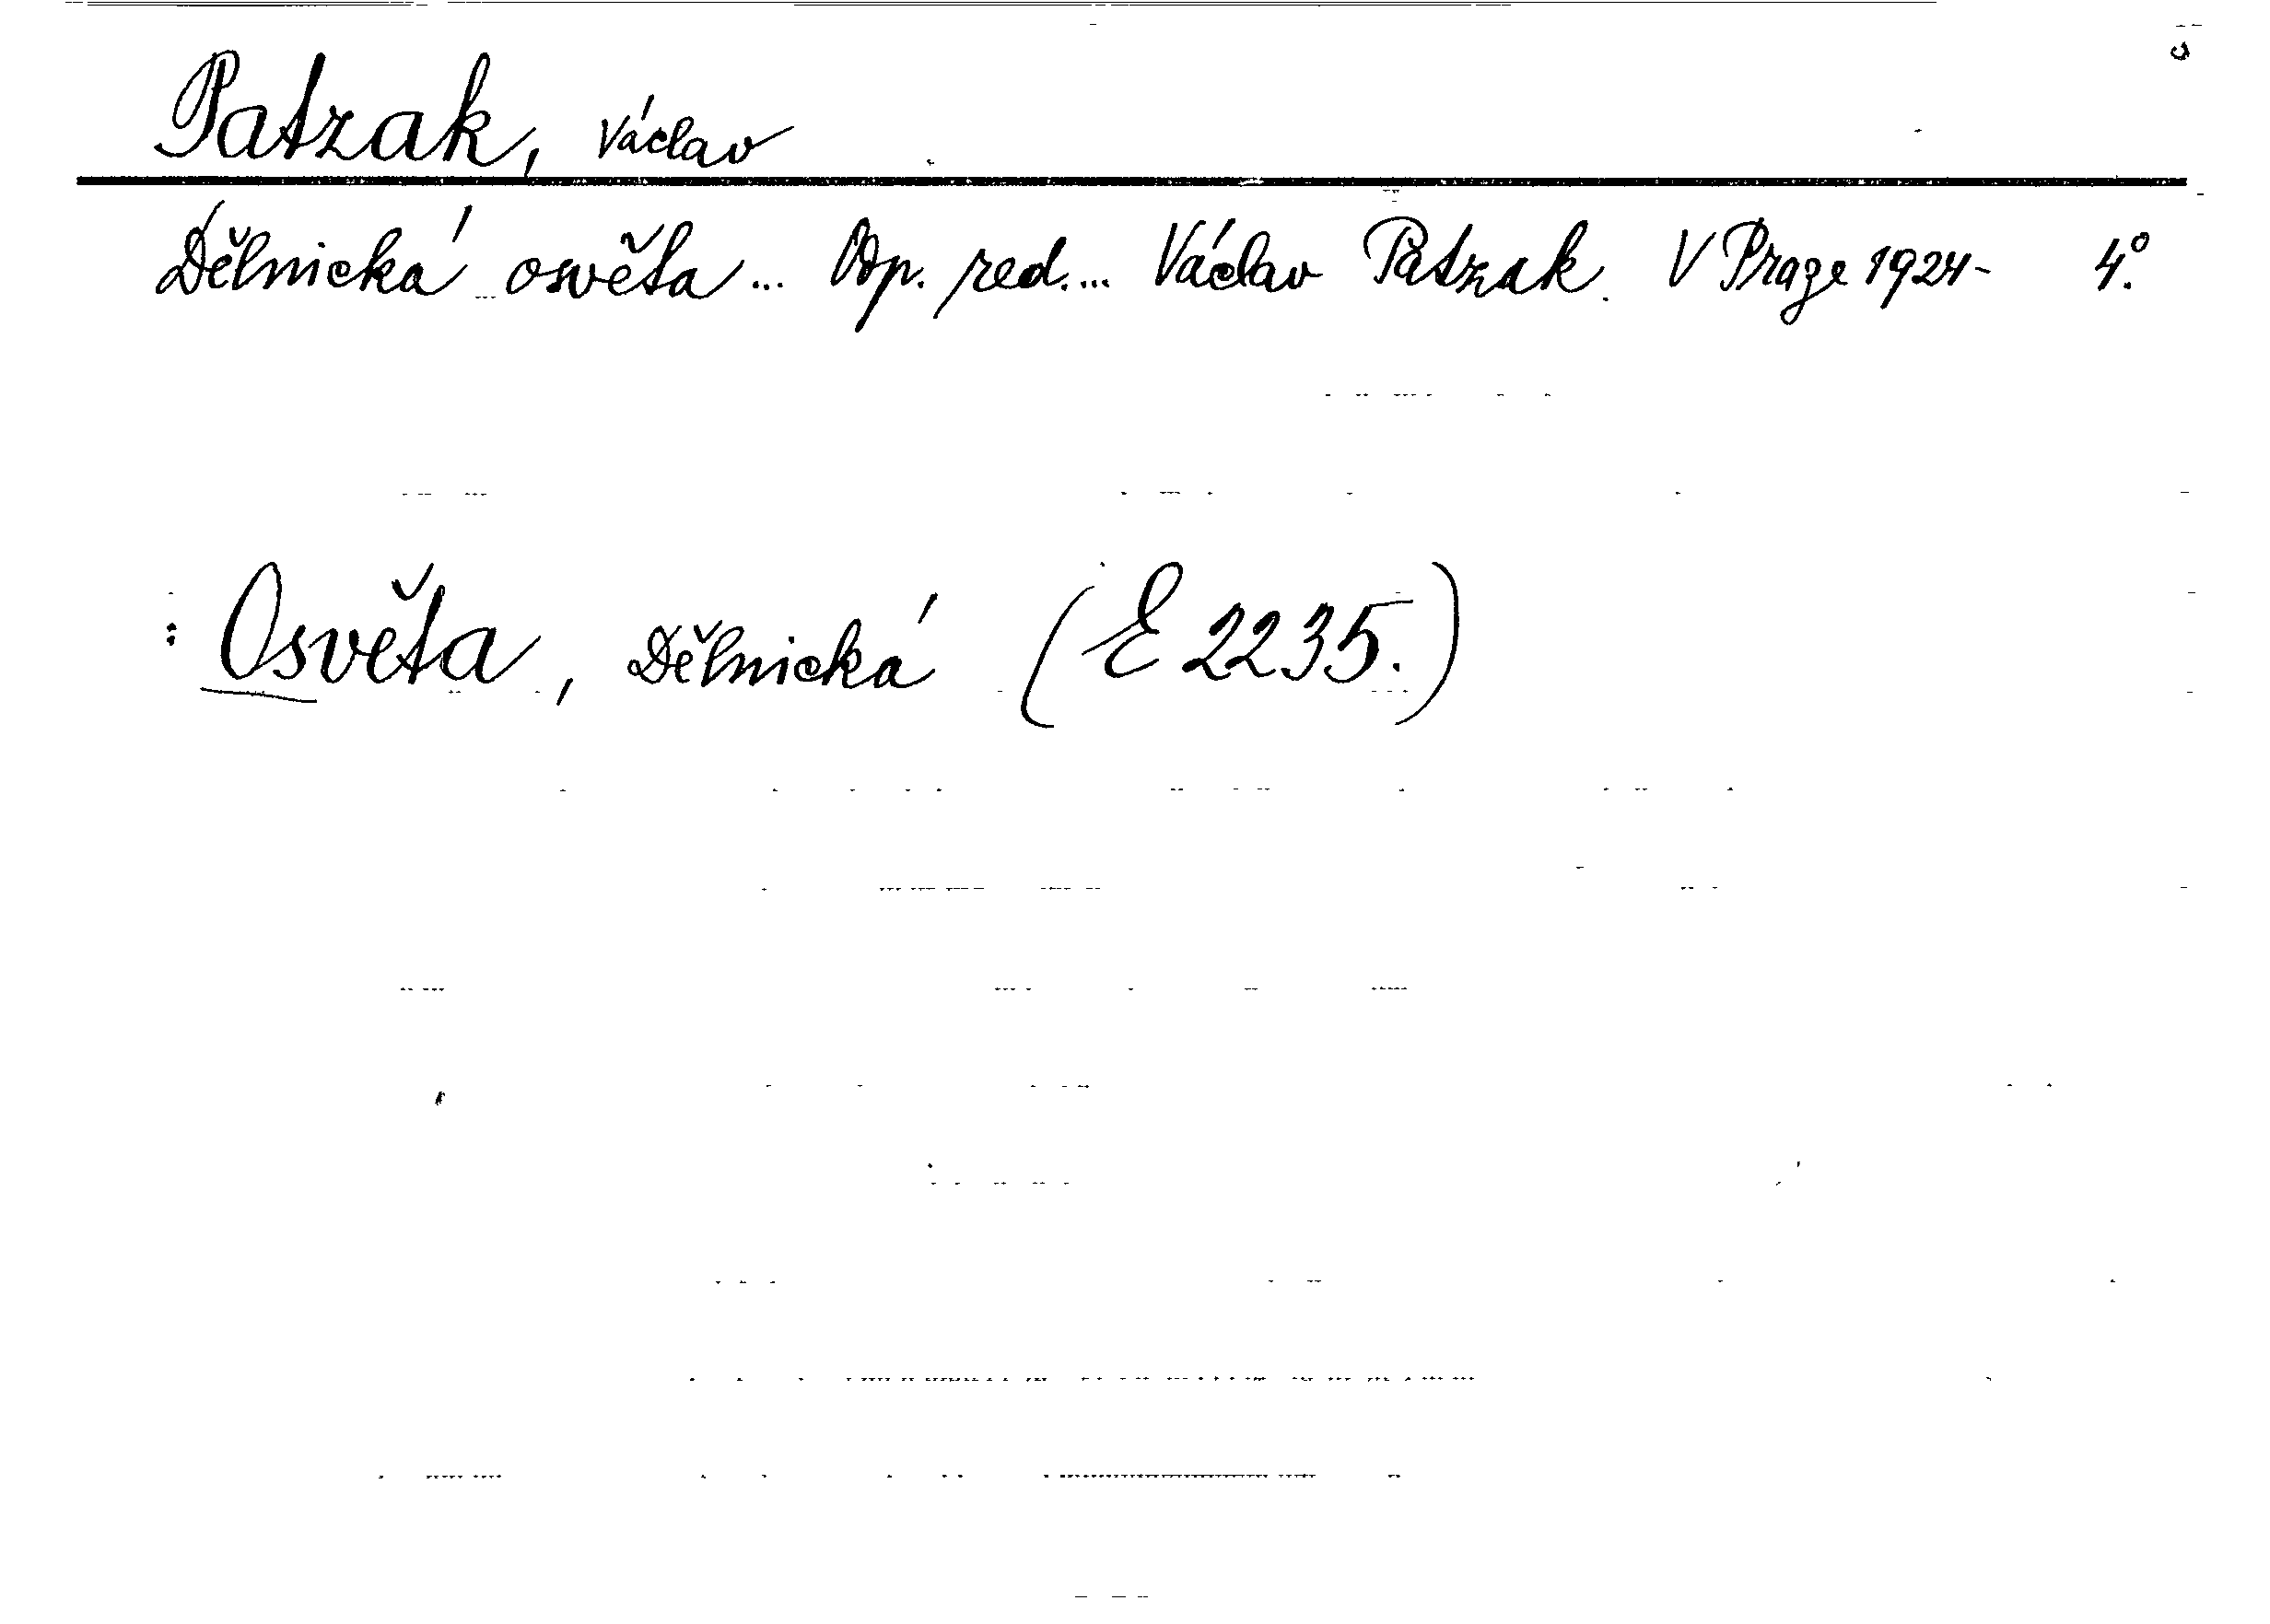 Patzak, Václav
Dělnická osvěta... Odp. red.... Václav Patzak. V Praze 1924- 4°.
: Osvěta, Dělnická (E 2235.)